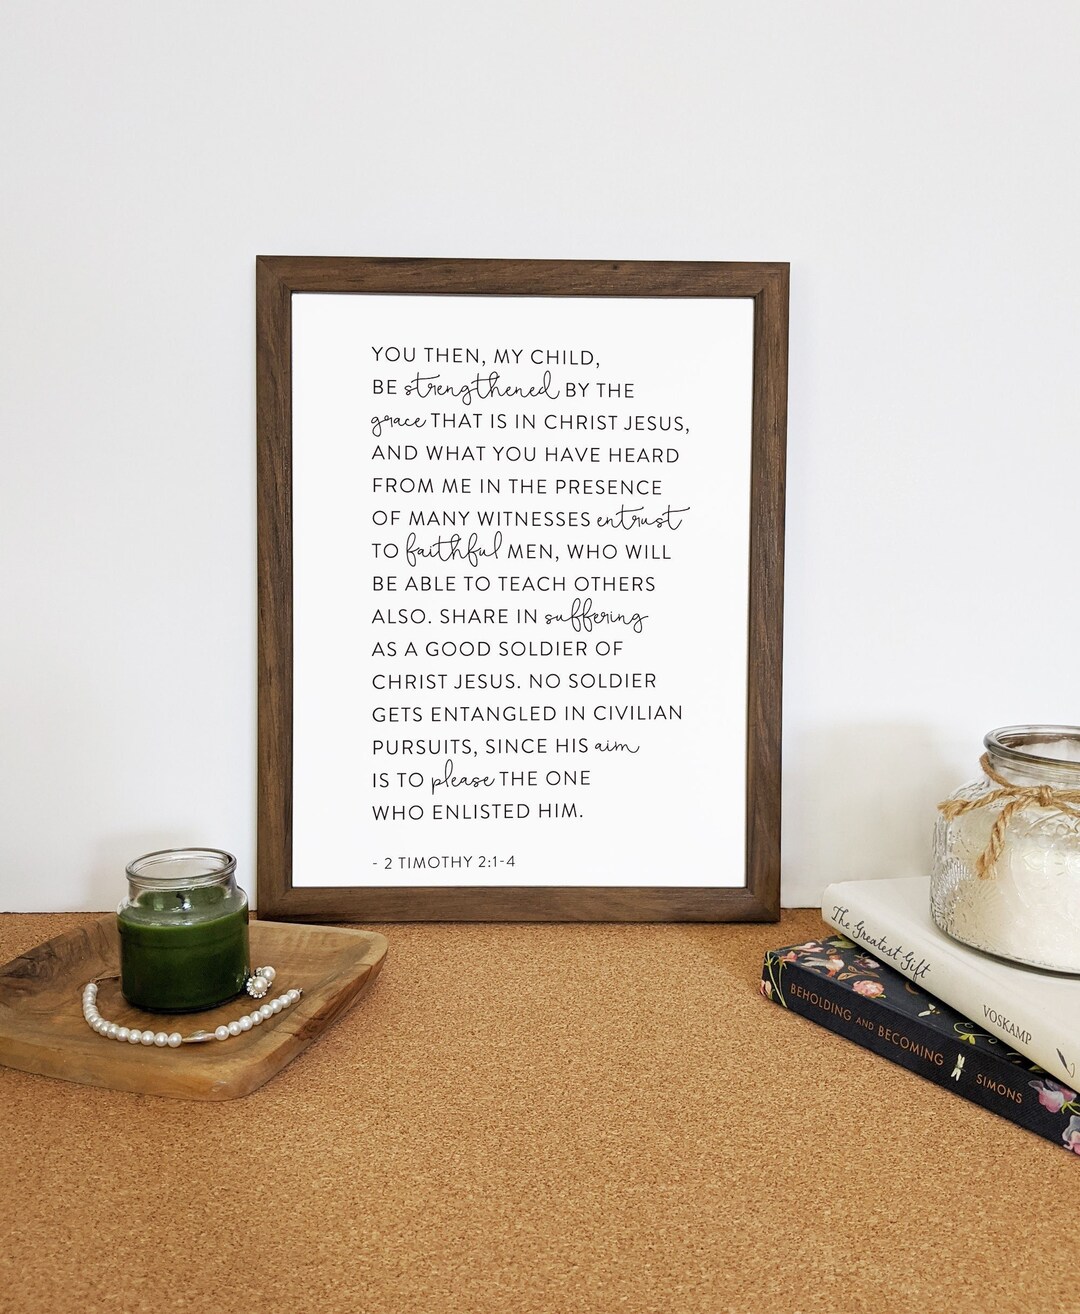 YOU THEN, MY CHILD,
BE strengthened BY THE
grace THAT IS IN CHRIST JESUS,
AND WHAT YOU HAVE HEARD
FROM ME IN THE PRESENCE
OF MANY WITNESSES entrust
TO faithful MEN, WHO WILL
BE ABLE TO TEACH OTHERS
ALSO. SHARE IN suffering
AS A GOOD SOLDIER OF
CHRIST JESUS. NO SOLDIER
GETS ENTANGLED IN CIVILIAN
PURSUITS, SINCE HIS aim
IS TO please THE ONE
WHO ENLISTED HIM.
- 2 TIMOTHY 2:1-4
The Greatest Gift VOSKAMP
BEHOLDING AND BECOMING SIMONS